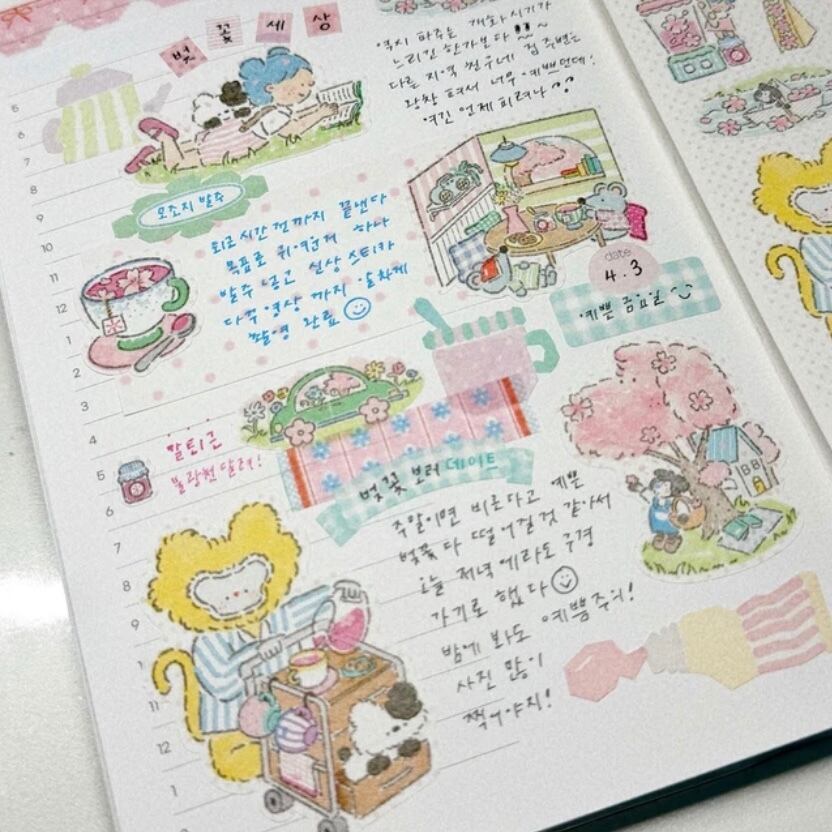 벚 꽃 세 상
역시 파주는 개화시기가
느리긴 한가본다 !! ~
다른 지역 친구네 집 주변은
왕창 펴서 너무 예쁘던데!
여긴 언제 피려나
오조지 발주
퇴근 시간 전까지 끝낸다
목표로 귀여운거 하나
발주 넣고 실상 스티커
다꾸 영상 까지 알차게
촬영 완료
date
4.3
예쁜 금요일
칼퇴근
불광천 달려!
벚꽃 보러 데이트
주말이면 비온다고 예쁜
벚꽃 다 떨어질것 같아서
오늘 저녁에라도 구경
가기로 했다
밤에 봐도 예쁨주의!
사진 많이
찍어야지!
5
6
7
8
9
10
11
12
1
2
3
4
5
6
7
8
9
1
11
12
1